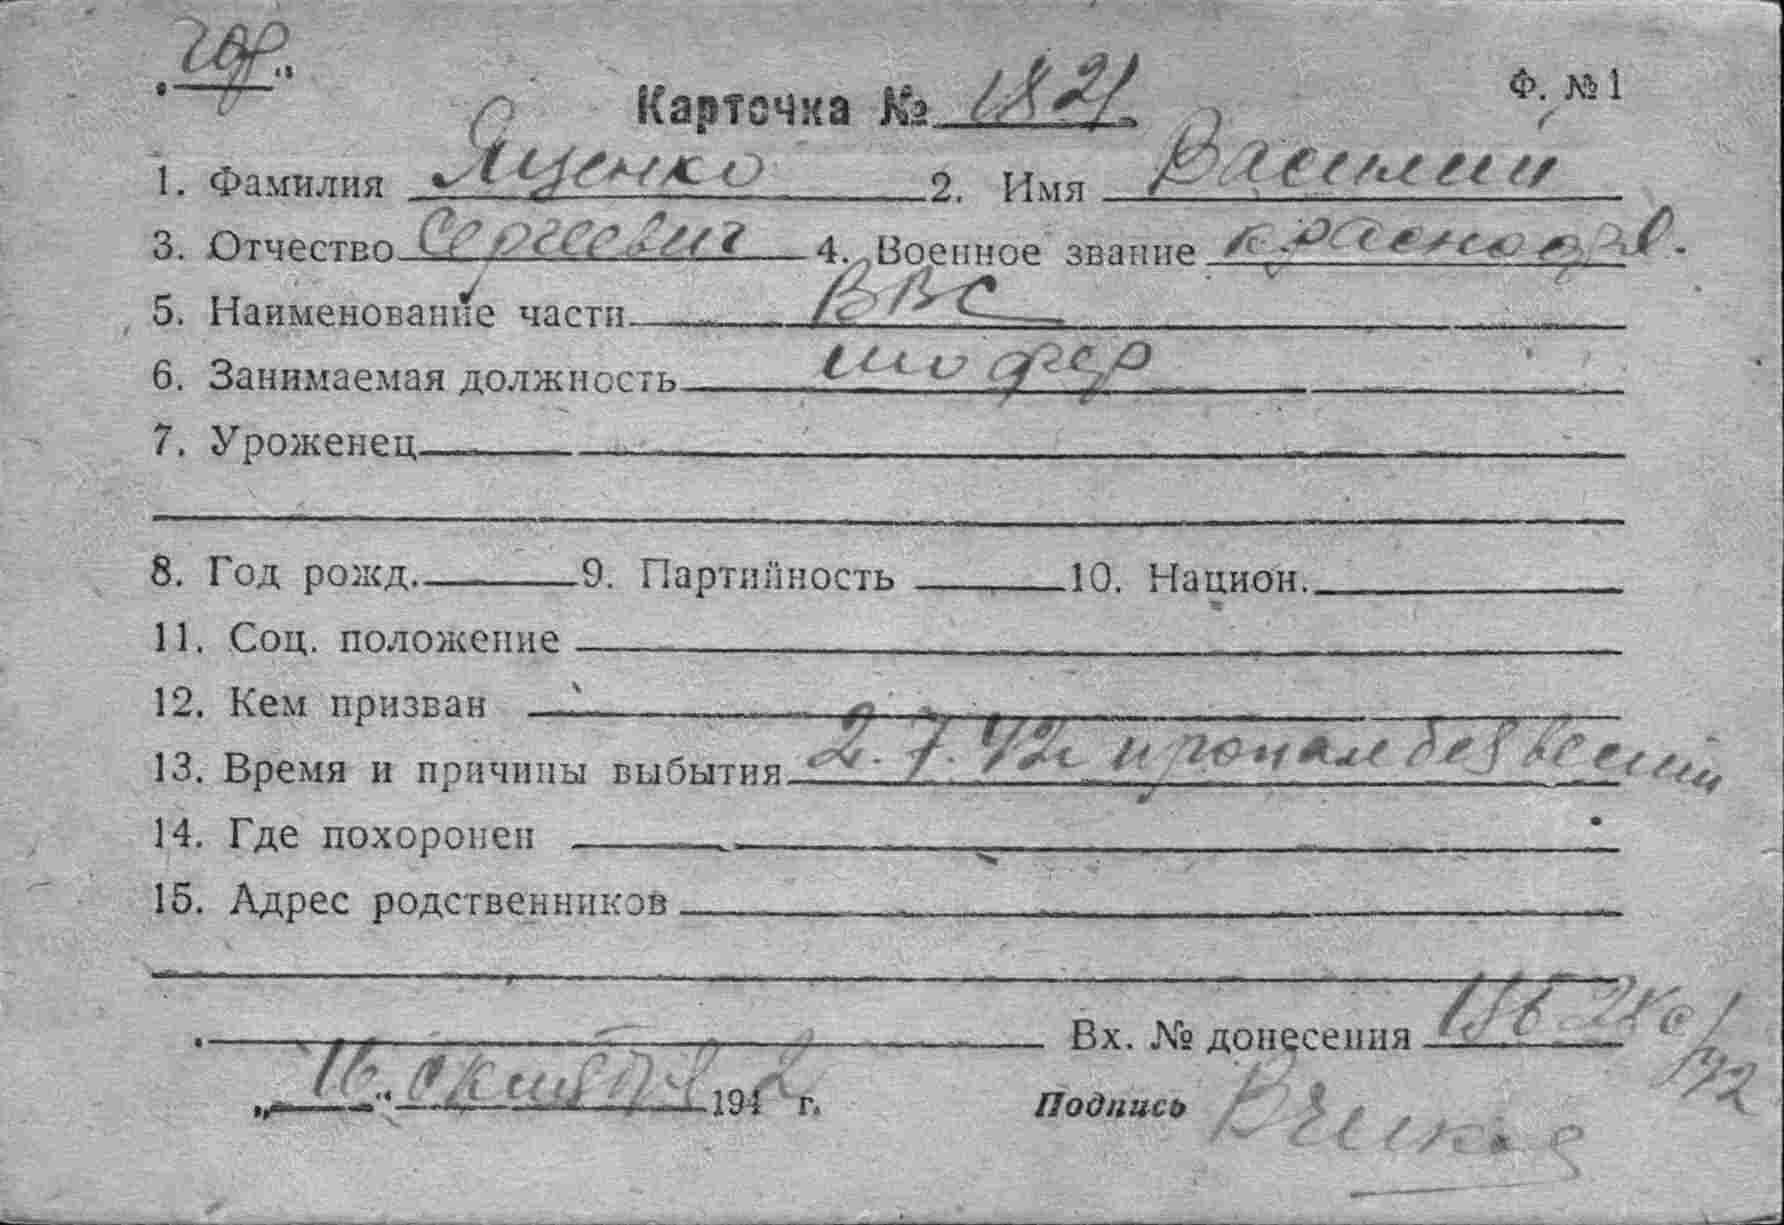 Ф. №1
Карточка № 1821
1. Фамилия Яценко 2. Имя Василий
3. Отчество Сергеевич 4. Военное звание красноар.
5. Наименование части ВВС
6. Занимаемая должность шофер
7. Уроженец
8. Год рожд. 9. Партийность 10. Национ.
11. Соц. положение
12. Кем призван
13. Время и причины выбытия 2.7.42г пропал без вести
14. Где похоронен
15. Адрес родственников
Вх. № донесения
„16“ октября 1942 г. Подпись